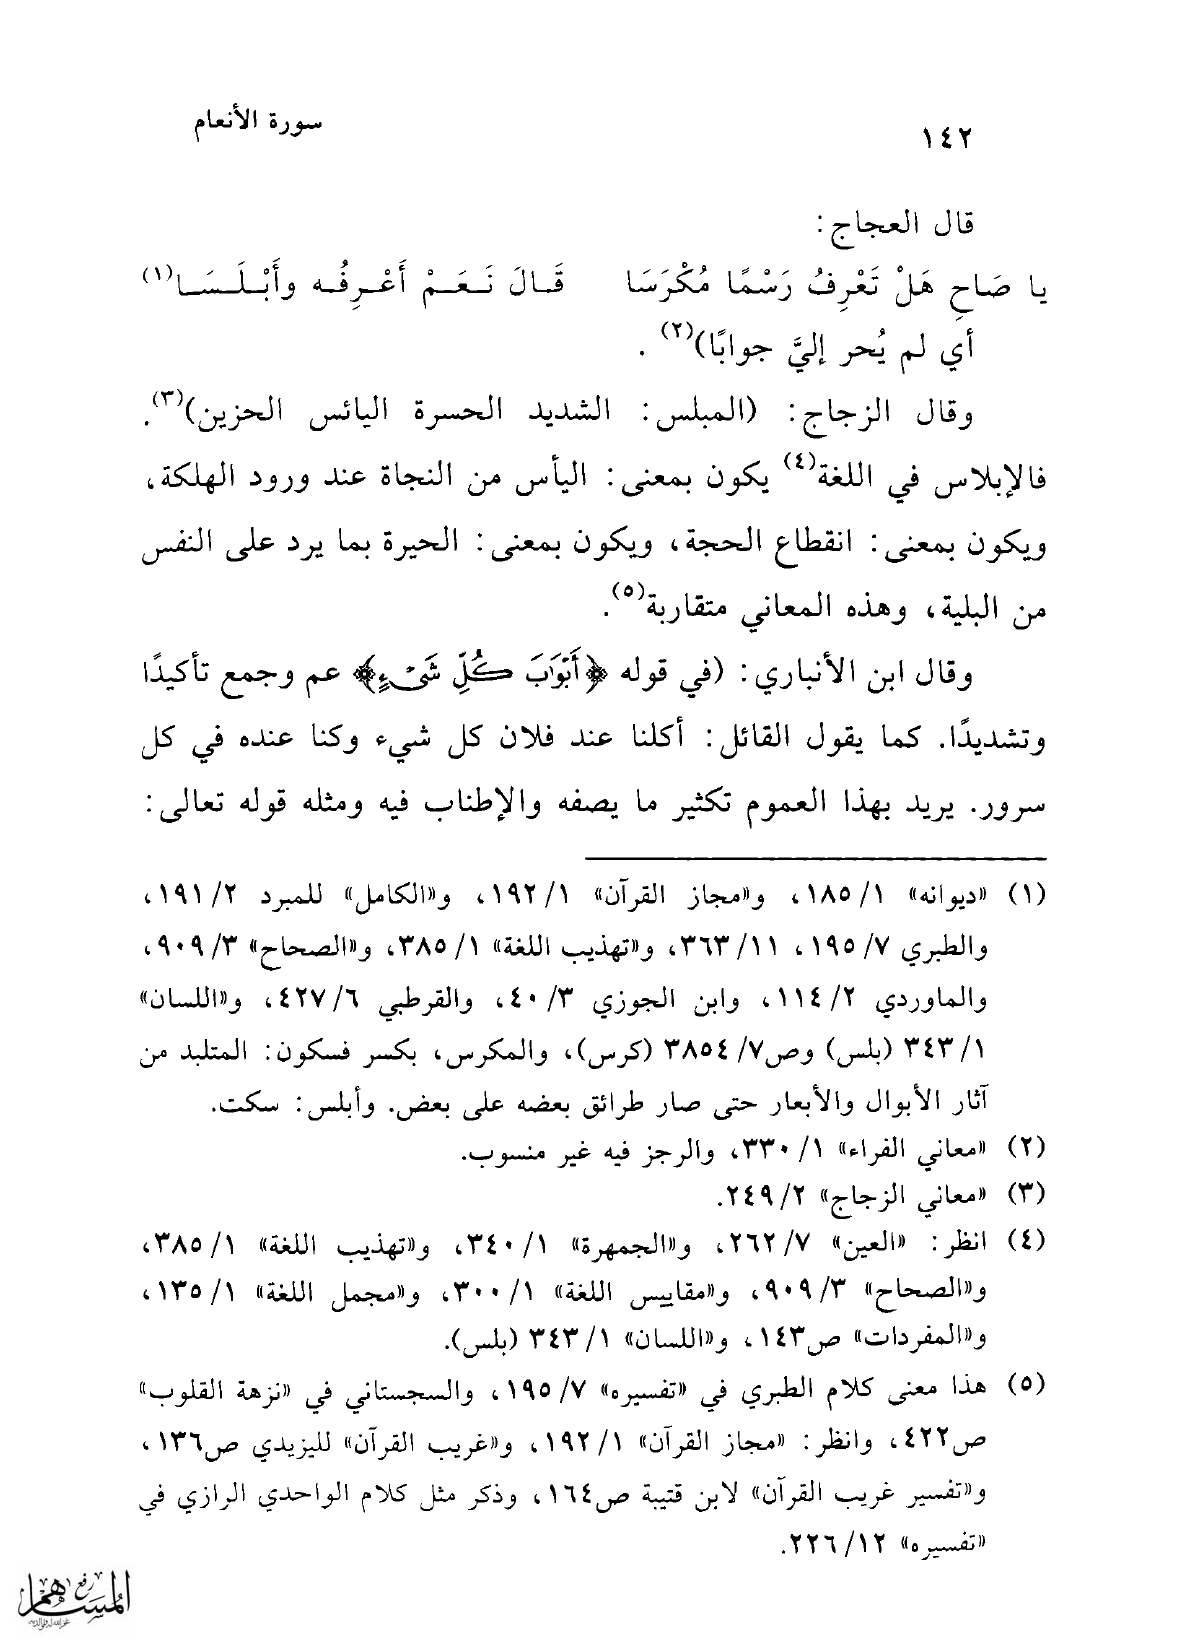 سورة الأنعام
١٤٢
قال العجاج:
يا صَاحِ هَلْ تَعْرِفُ رَسْمًا مُكْرَسَا قَالَ نَعَمْ أَعْرِفُه وأَبْلَسَا(١)
أي لم يُحر إليَّ جوابًا)(٢) .
وقال الزجاج: (المبلس: الشديد الحسرة اليائس الحزين)(٣).
فالإبلاس في اللغة(٤) يكون بمعنى: اليأس من النجاة عند ورود الهلكة،
ويكون بمعنى: انقطاع الحجة، ويكون بمعنى: الحيرة بما يرد على النفس
من البلية، وهذه المعاني متقاربة(٥).
وقال ابن الأنباري: (في قوله ﴿أَبْوَابَ كُلِّ شَيْءٍ﴾ عم وجمع تأكيدًا
وتشديدًا. كما يقول القائل: أكلنا عند فلان كل شيء وكنا عنده في كل
سرور. يريد بهذا العموم تكثير ما يصفه والإطناب فيه ومثله قوله تعالى:
(١) «ديوانه» ١/ ١٨٥، و«مجاز القرآن» ١/ ١٩٢، و«الكامل» للمبرد ٢/ ١٩١،
والطبري ٧/ ١٩٥، ١١/ ٣٦٣، و«تهذيب اللغة» ١/ ٣٨٥، و«الصحاح» ٣/ ٩٠٩،
والماوردي ٢/ ١١٤، وابن الجوزي ٣/ ٤٠، والقرطبي ٦/ ٤٢٧، و«اللسان»
١/ ٣٤٣ (بلس) وص٧/ ٣٨٥٤ (كرس)، والمكرس، بكسر فسكون: المتلبد من
آثار الأبوال والأبعار حتى صار طرائق بعضه على بعض. وأبلس: سكت.
(٢) «معاني الفراء» ١/ ٣٣٠، والرجز فيه غير منسوب.
(٣) «معاني الزجاج» ٢/ ٢٤٩.
(٤) انظر: «العين» ٧/ ٢٦٢، و«الجمهرة» ١/ ٣٤٠، و«تهذيب اللغة» ١/ ٣٨٥،
و«الصحاح» ٣/ ٩٠٩، و«مقاييس اللغة» ١/ ٣٠٠، و«مجمل اللغة» ١/ ١٣٥،
و«المفردات» ص١٤٣، و«اللسان» ١/ ٣٤٣ (بلس).
(٥) هذا معنى كلام الطبري في «تفسيره» ٧/ ١٩٥، والسجستاني في «نزهة القلوب»
ص٤٢٢، وانظر: «مجاز القرآن» ١/ ١٩٢، و«غريب القرآن» لليزيدي ص١٣٦،
و«تفسير غريب القرآن» لابن قتيبة ص١٦٤، وذكر مثل كلام الواحدي الرازي في
«تفسيره» ١٢/ ٢٢٦.
رفع